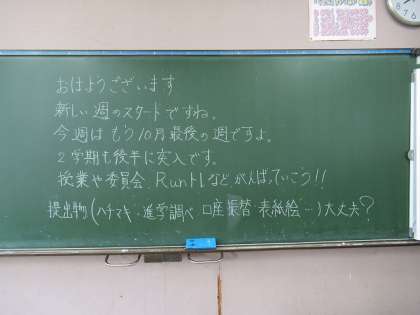 おはようございます
新しい週のスタートですね。
今週はもう10月最後の週ですよ。
2学期も後半に突入です。
授業や委員会、Runトレなどがんばっていこう!!
提出物(ハチマキ・進学調べ 口座振替・表紙絵…)大丈夫?